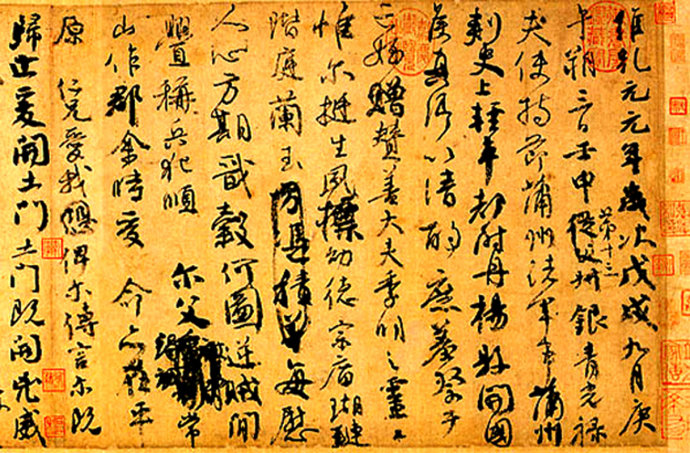 維乾元元年歲次戊戌九月庚
午朔三日壬申第十三從父銀青光祿
夫使持節蒲州諸軍事蒲州
刺史上輕車都尉丹楊縣開國
侯真卿以清酌庶羞祭于
亡姪贈贊善大夫季明之靈曰
惟爾挺生夙標幼德宗廟瑚璉
階庭蘭玉方憑積善每慰
人心方期戩穀何圖逆賊閒
釁稱兵犯順 爾父常
山作郡余時受 命亦在平
原 仁兄愛我俾爾傳言爾既
歸止爰開土門土門既開凶威